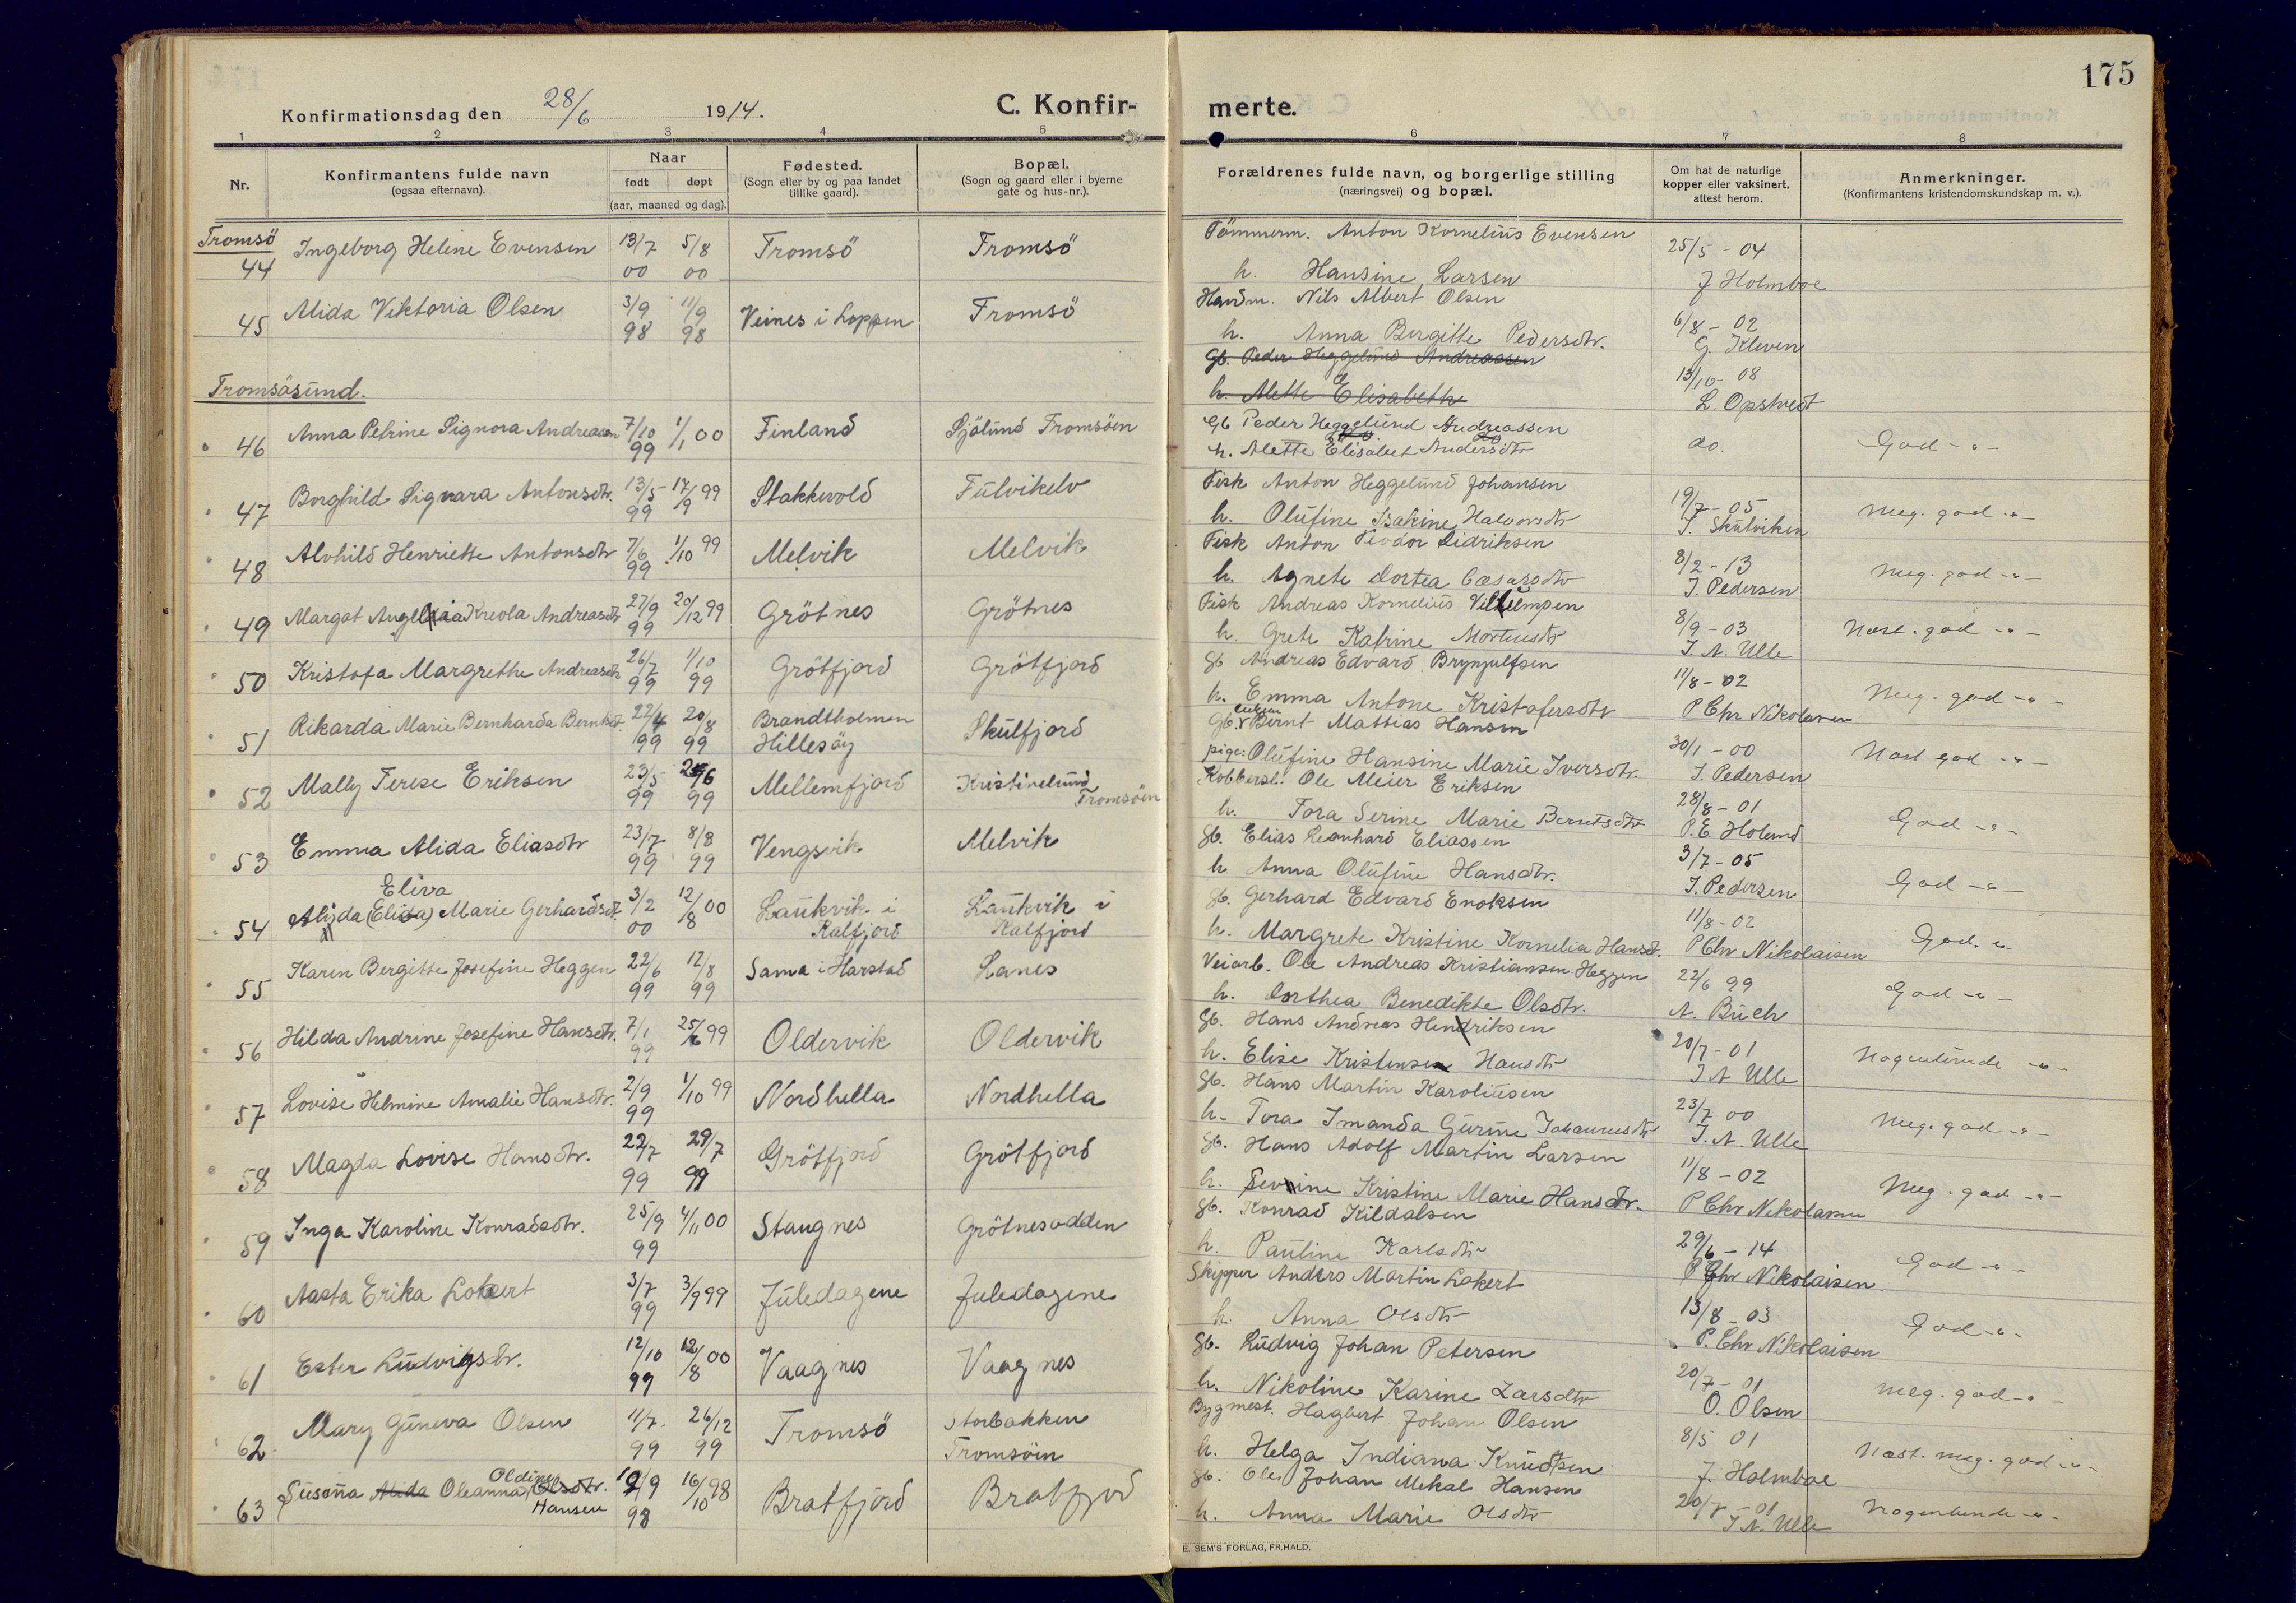 175
Konfirmationsdag den 28/6 1914. C. Konfir-
merte.
1 2 3 4 5
6 7 8
Nr.
Konfirmantens fulde navn
(ogsaa efternavn).
Naar
født døpt
(aar, maaned og dag).
Fødested.
(Sogn eller by og paa landet
tillike gaard).
Bopæl.
(Sogn og gaard eller i byerne
gate og hus-nr.).
Forældrenes fulde navn, og borgerlige stilling
(næringsvei) og bopæl.
Om hat de naturlige
kopper eller vaksinert,
attest herom.
Anmerkninger.
(Konfirmantens kristendomskundskap m. v.).
Tromsö
44 Ingeborg Helene Evensen 13/7 5/8 Tromsö Tromsö
00 00
Tömmerm. Anton Kornelius Evensen 25/5 - 04
h. Hansine Larsen J Holmboe
45 Alida Viktoria Olsen 3/9 11/9 Veines i Loppen Tromsö
98 98
Handm. Nils Albert Olsen 6/8 - 02
h. Anna Bergitte Pedersdtr. G. Kleven
Tromsösund.
Gb. Peder Heggelund Andreassen 13/10 - 08
h. Alette Elisabethe L. Opstvedt
46 Anna Petrine Signora Andreasen 7/10 1/1 00 Finland Sjölund Tromsöen
99
Gb Peder Heggelund Andreassen do. God -"-
h. Alette Elisabet Andersdtr
47 Borghild Signara Antonsdtr. 13/5 17/9 99 Stakkvold Fulvikelv
99
Fisk Anton Heggelund Johansen 19/7 - 05 Meg. god -"-
h. Olufine Isakine Halvorsdtr J. Skulviken
48 Alvhild Henriette Antonsdtr 7/6 1/10 99 Melvik Melvik
99
Fisk Anton Teodor Didriksen 8/2 - 13 Meg. god -"-
h. Agnete Dortea Cæsarsdtr J. Pedersen
49 Margot Kreola Andreasdtr 27/9 20/12 99 Grötnes Grötnes
99
Fisk Andreas Kornelius 8/9 - 03 Næst. god -"-
h. Grete Katrine J. N. Ulle
50 Kristofa Margrethe Andreasdtr 26/7 1/10 Grötfjord Grötfjord
99 99
Gb Andreas Edvard Brynjulfsen 11/8 - 02 Meg. god -"-
h. Emma Antone Kristofersdtr P Chr Nikolaisen
51 Rikarda Marie Bernharda Berntsdt. 22/4 20/8 Brandtholmen Skulfjord
99 99 Hillesöy
Gb. Bernt Mattias Hansen 30/1 - 00 Næst god -"-
pige: Olufine Hansine Marie Iversdtr. J. Pedersen
52 Mally Terese Eriksen 23/5 /6 Mellemfjord Kristinelund
99 99 Tromsöen
Kobbersl: Ole Meier Eriksen 28/8 - 01 God -"-
h. Tora Serine Marie Berntsdtr P. E. Holund
53 Emma Alida Eliasdtr 23/7 8/8 Vengsvik Melvik
99 99
Gb. Elias Leonhard Eliassen 3/7 - 05 God -"-
h Anna Olufine Hansdtr. J. Pedersen
Eliva
54 Alida (Elida) Marie Gerhardsdt. 3/2 12/8 00 Laukvik i Laukvik i
00 Kalfjord Kalfjord
Gb. Gerhard Edvard Enoksen 11/8 - 02 God. "-
h. Margrete Kristine Kornelia Hansdt. P Chr Nikolaisen
55 Karen Bergitte Josefine Heggen 22/6 12/8 Sama i Harstad Lanes
99 99
Veiarb. Ole Andreas Kristiansen Heggen 22/6 99 God -"-
h. Dorthea Benedikte Olsdtr. A. Buch
56 Hilda Andrine Josefine Hansdtr. 7/1 25/6 99 Oldervik Oldervik
99
Gb. Hans Andreas Hendriksen 20/7 - 01 Nogenlunde -"-
h. Elise Kristensen Hansdtr J N Ulle
57 Lovise Helmine Amalie Hansdtr. 2/9 1/10 99 Nordhella Nordhella
99
Gb. Hans Martin Karoliusen 23/7 00 Meg. god -"-
h. Tora Imanda Gurine Johannesdtr J. N. Ulle
58 Magda Lovise Hansdtr. 22/7 29/7 Grötfjord Grötfjord
99 99
Gb. Hans Adolf Martin Larsen 11/8 - 02 Meg. god -"-
h. Kristine Marie Hansdtr. P Chr Nikolaisen
59 Inga Karoline Konradsdtr. 25/9 4/11 00 Staugnes Grötnesodden
99
Gb. Konrad Kildalsen 29/6 - 14 God -"-
h. Pauline Karlsdtr P Chr Nikolaisen
60 Aasta Erika Lokert 3/7 3/9 99 Juledagene Juledagene
99
Skipper Anders Martin Lokert 13/8 - 03 God -"-
h. Anna Olsdtr P. Chr Nikolaisen
61 Ester Ludvigsdtr. 12/10 12/8 00 Vaagnes Vaagnes
99
Gb. Ludvig Johan Petersen 20/7 - 01 Meg. god -"-
h. Nikoline Karine Larsdtr O. Olsen
62 Mary Guneva Olsen 11/7 26/12 Tromsö Storbakken
99 99 Tromsöen
Bygmest. Hagbert Johan Olsen 8/5 01 Næst. meg. god -"-
h. Helga Indiana Knudtsen J. Holmboe
Oldine
63 Susöna Alida Oleanna Olsdtr. 19/9 16/10 98 Bratfjord Bratfjord
Hansen 98
Gb. Ole Johan Mekal Hansen 20/7 - 01 Nogenlunde -"-
h. Anna Marie Olsdtr J N. Ulle
E. SEM'S FORLAG, FR.HALD.